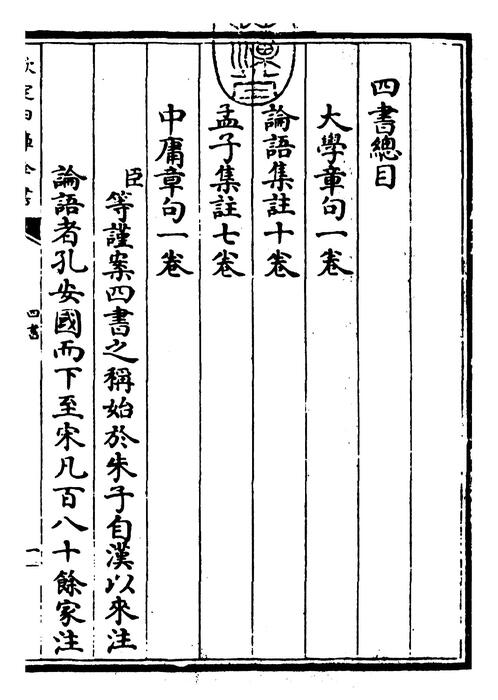 四書總目
大學章句一卷
論語集註十卷
孟子集註七卷
中庸章句一卷
臣等謹案四書之稱始於朱子自漢以來注
論語者孔安國而下至宋凡百八十餘家注
欽定四庫全書
四書
一